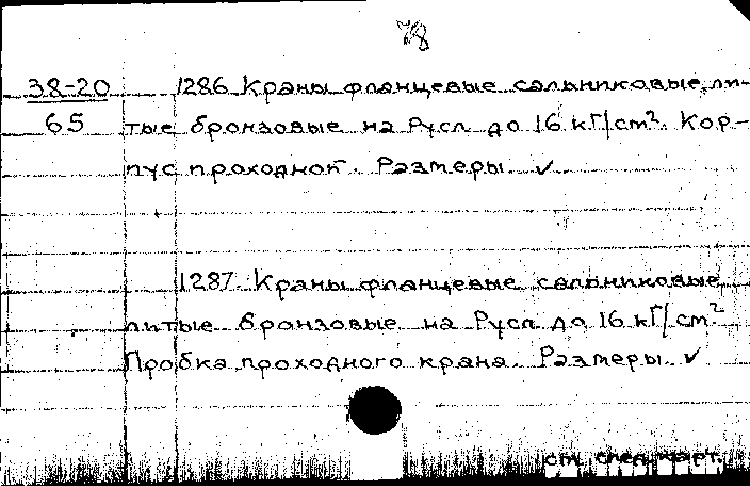 78
38-20 1286 Краны фланцевые сальниковые, ли-
65 тые бронзовые на Русл до 16 кГ/см². Кор-
пус проходной. Размеры ✓
1287. Краны фланцевые сальниковые
литые бронзовые на Русл до 16 кГ/см²
Пробка проходного крана. Размеры ✓
см. след. карт.